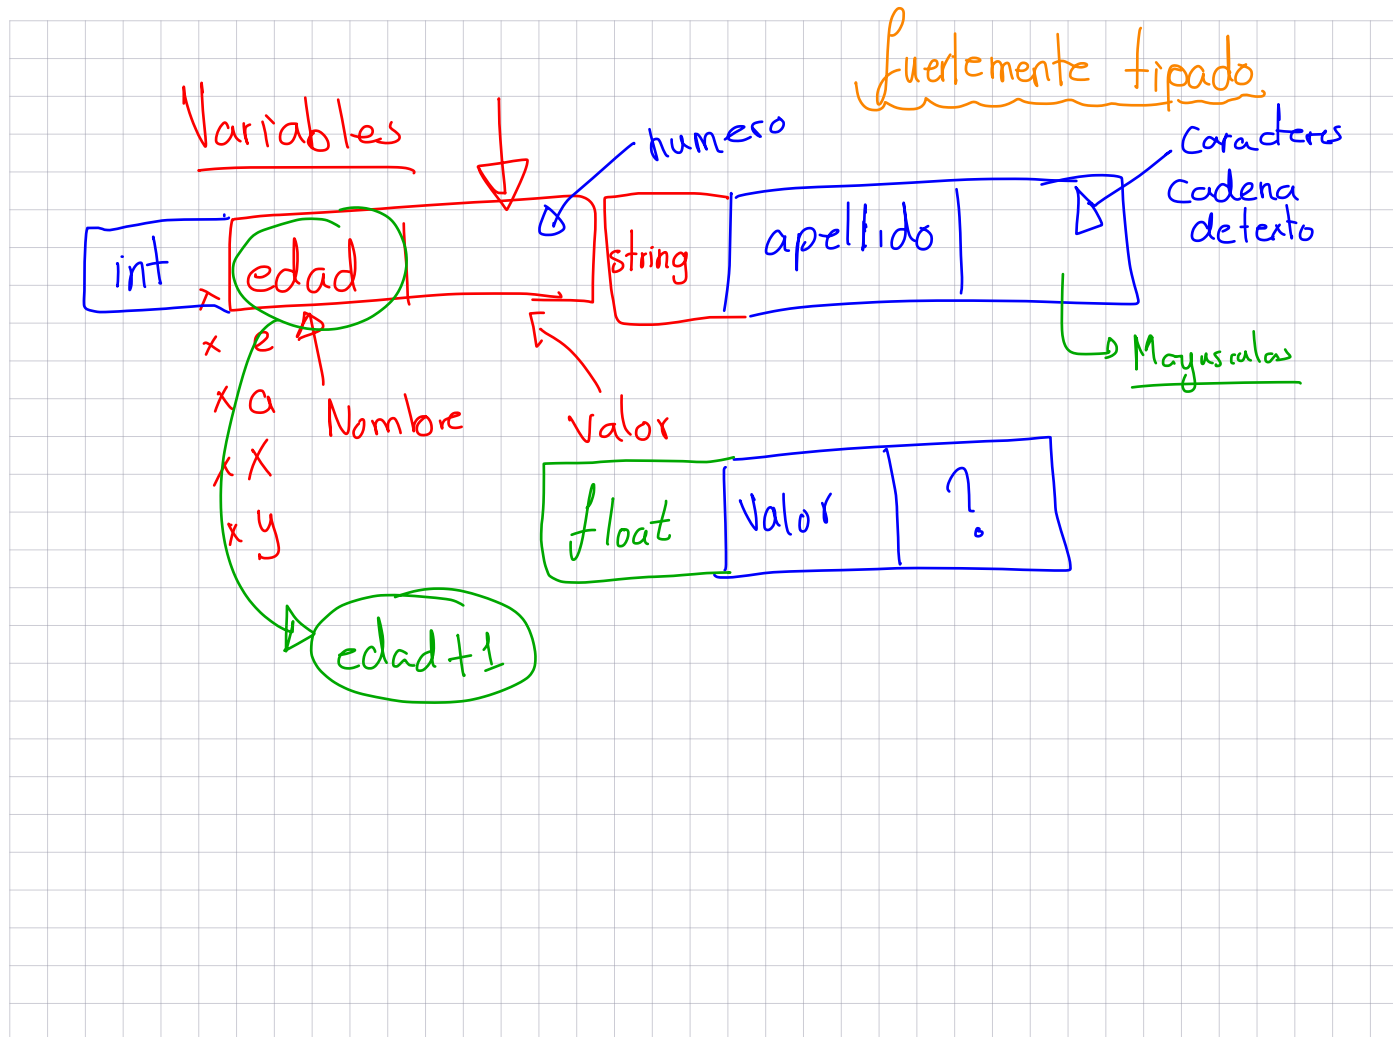 fuertemente tipado
Variables
numero
Caracteres
cadena
de texto
int
edad
string
apellido
x e
Mayusculas
x a
Nombre
Valor
x X
float
Valor
?
x y
edad+1